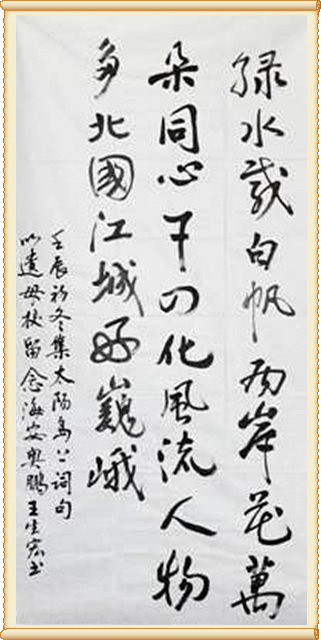 绿水載白帆两岸花萬
朵同心干四化風流人物
多北國江城好巍峨
壬辰初冬集太阳島上詞句
以遺母校留念海安奥鵬王生宏书